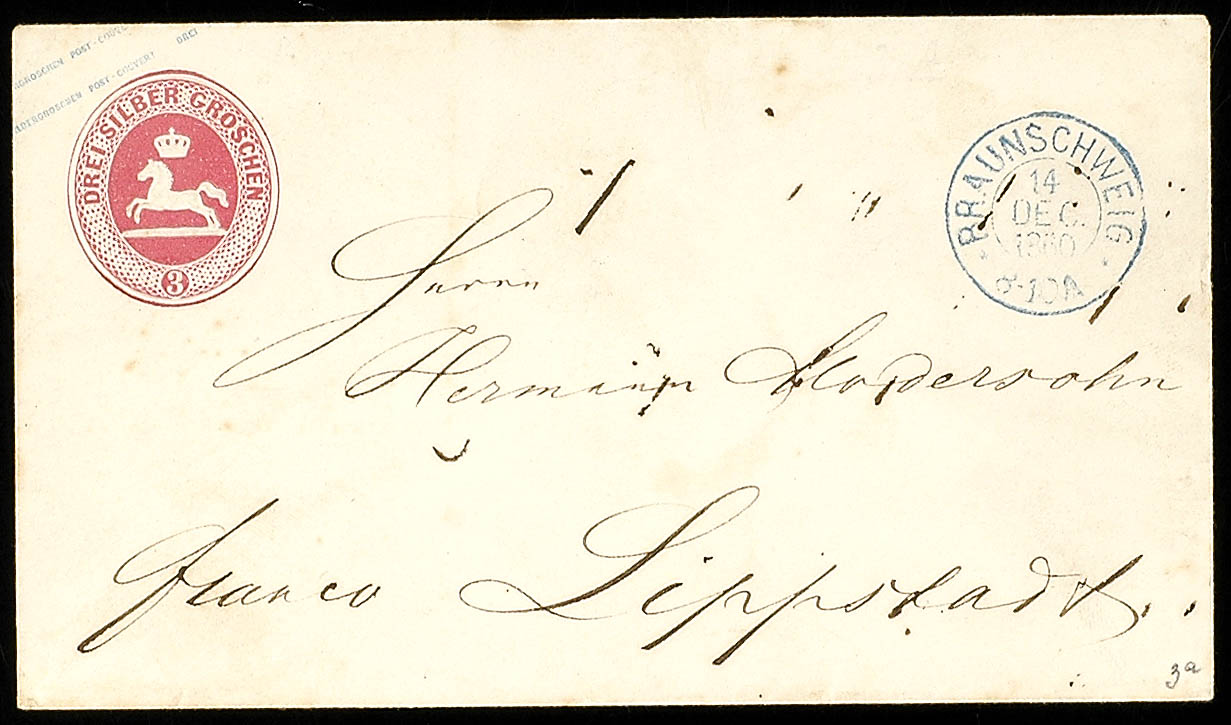 GROSCHEN POST-COUVE
LBERGROSCHEN POST-COUVERT DREI
DREI SILBER GROSCHEN
3
BRAUNSCHWEIG
14
DEC.
1860
8-10A
Herrn
Hermann Modersohn
franco Lippstadt.
3a